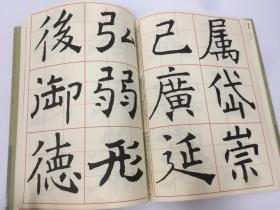 属岱崇
己廣延
弘弱形
後御德